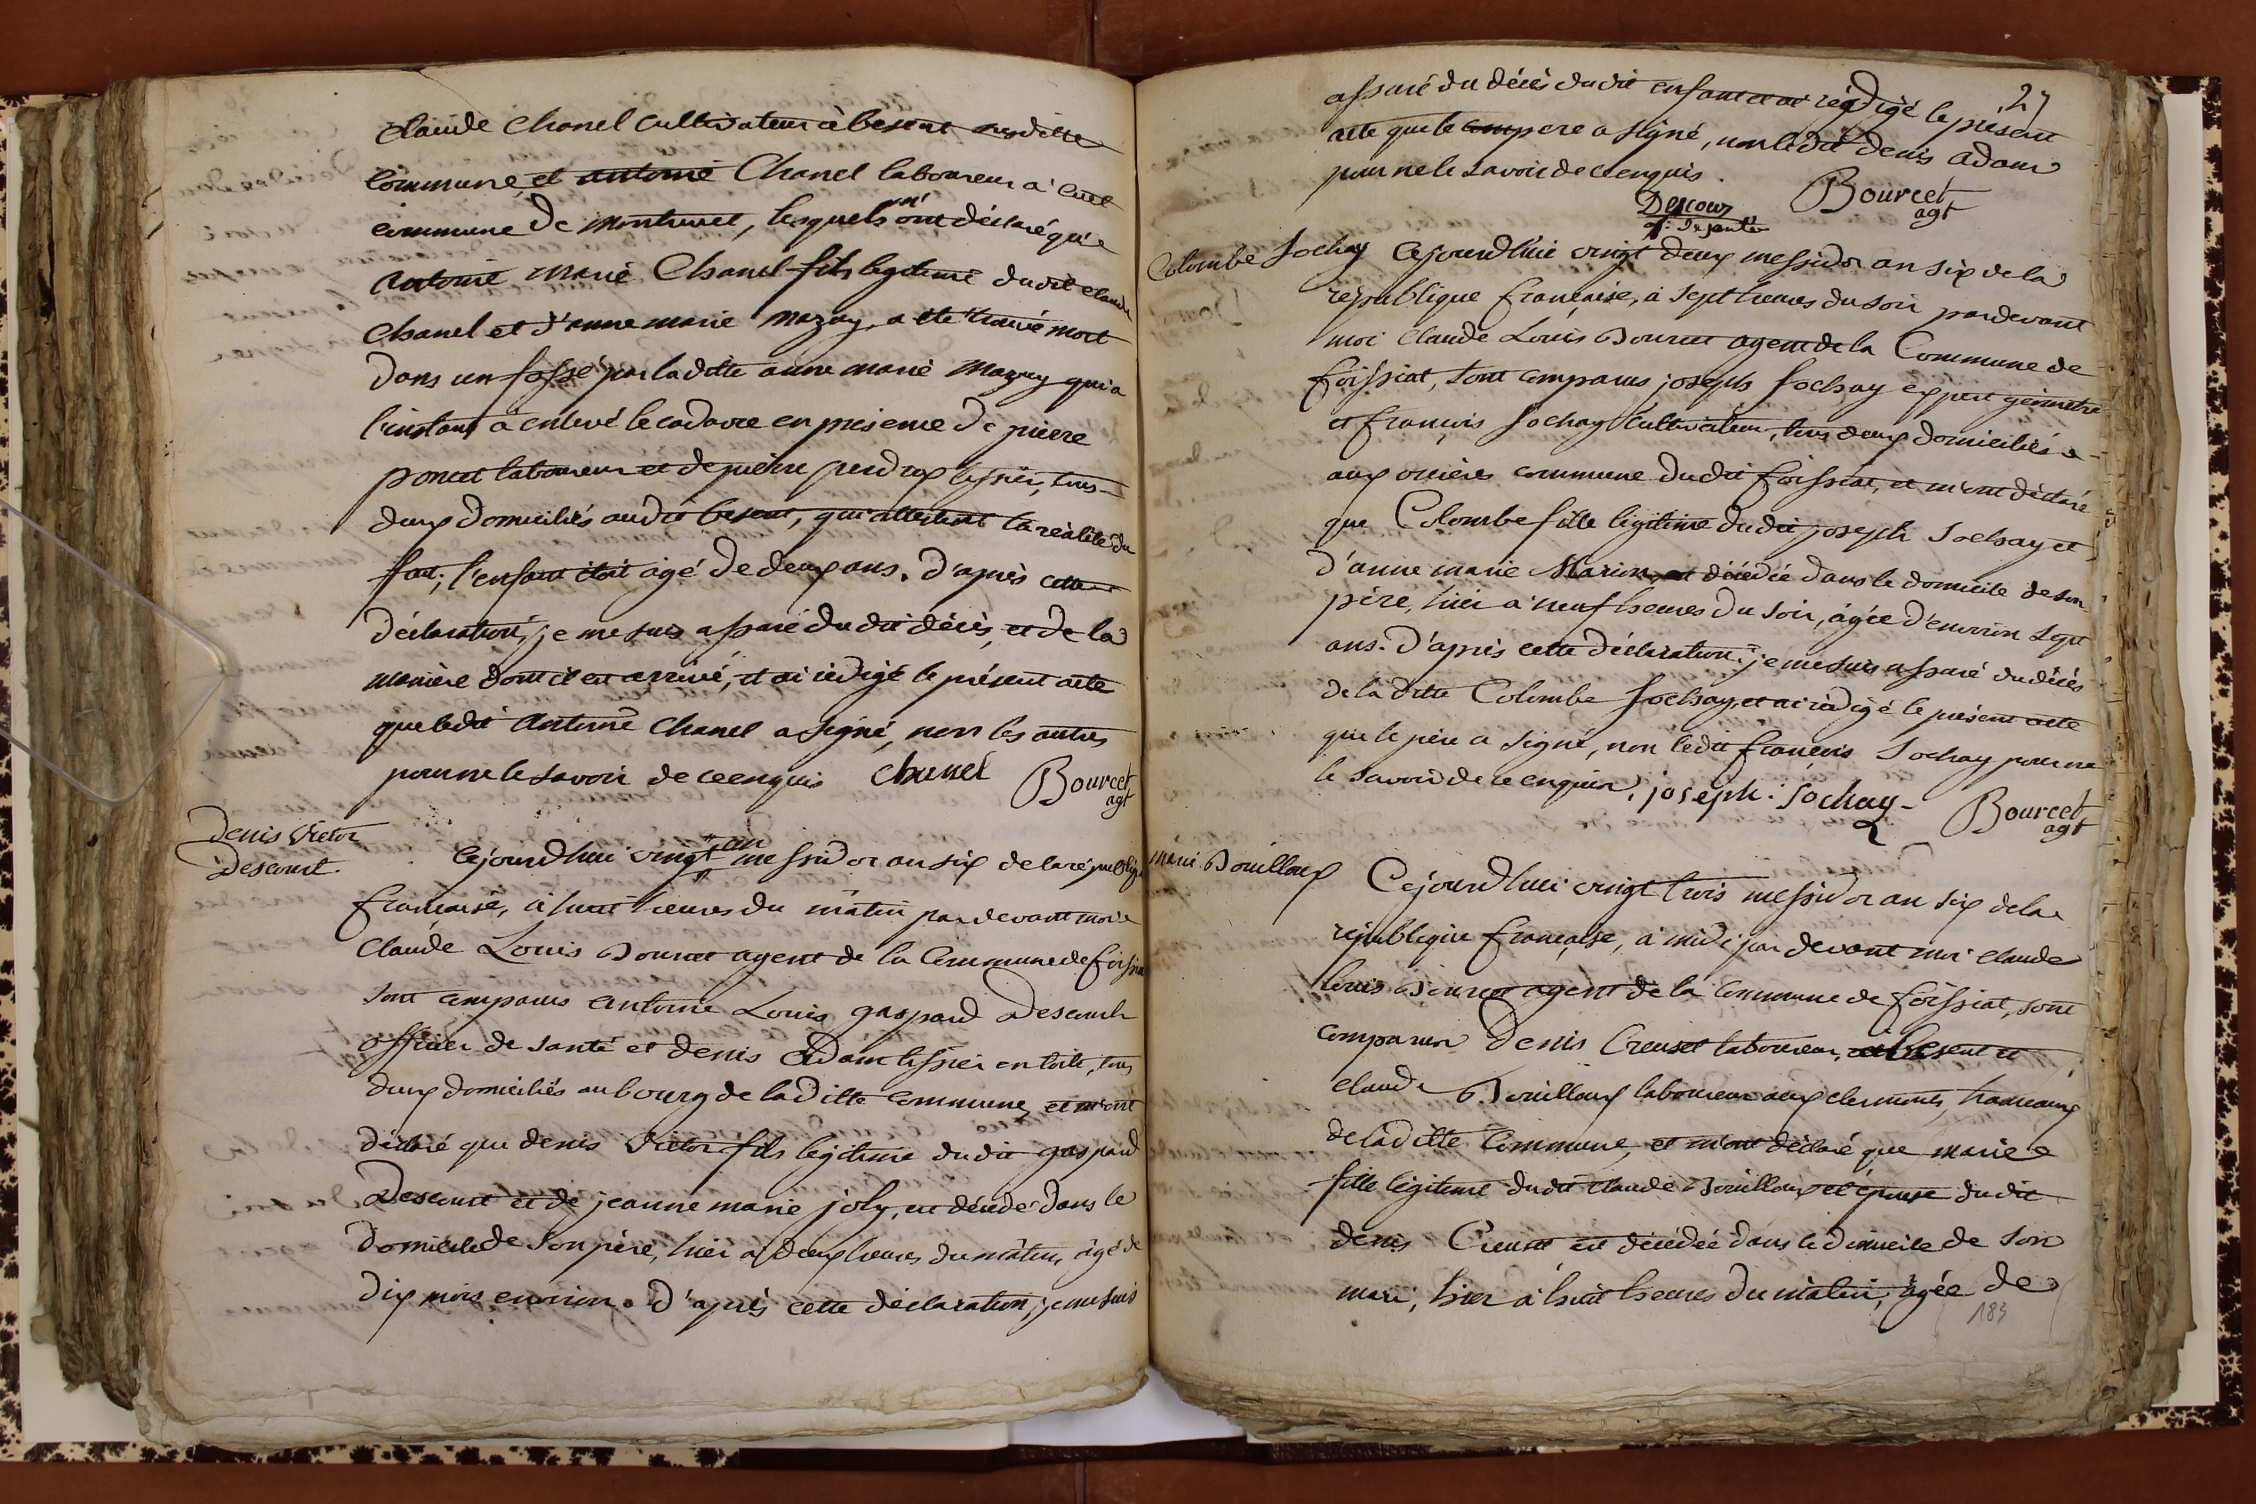 claude Chanel cultivateur à besent susditte
commune, et antoine Chanel laboureur à cuet
commune de montrevel, lesquels m'ont déclaré que
antoine marie Chanel fils legitime dudit claude
Chanel et d'anne marie mazuy, a été trouvé mort
dans un fossé par la ditte anne marie Mazuy qui a
l'instant a enlevé le cadavre en presence de pierre
poncet laboureur et de pierre perdrix tissier, tous
deux domiciliés audit besent, qui attestent la réalité du
fait; l'enfant étoit agé de deux ans. d'après cette
déclaration, je me suis assuré du dit décès, et de la
manière dont il est arrivé, et ai rédigé le présent acte
que ledit antoine Chanel a signé, non les autres
pour ne le savoir de ce enquis chanel Bourcet
agt
denis victor
Descourt.
Cejourdhui vingt un messidor an six de la républiq
française, à huit heures du matin par devant moi
Claude Louis Bourcet agent de la Commune de foissiat
sont comparus antoine Louis gaspard Descourt
officier de santé et denis Adam tissier en toile, tous
deux domiciliés au bourg de la ditte commune, et m'ont
déclaré que denis victor fils legitime du dit gaspard
Descourt et de jeanne marie joly, est décédé dans le
domicile de son père, hier a deux heures du matin, âgé de
dix mois environ. d'après cette déclaration, je me suis
27
assuré du décès du dit enfant et ai rédigé le présent
acte que le père a signé, non le dit denis adam
pour ne le savoir de ce enquis.
Descour Bourcet
agt
Colombe Sochay
Cejourdhui vingt deux messidor an six de la
république française, à sept heures du soir pardevant
moi Claude Louis Bourcet agent de la Commune de
foissiat, sont comparus joseph Sochay expert géomètre
et françois Sochay cultivateur, tous deux domiciliés
aux orcières commune dudit foissiat, et m'ont déclaré
que Colombe fille légitime du dit joseph Sochay et
d'anne marie Marion, est décédée dans le domicile de son
père, hier à neuf heures du soir, âgée d'environ sept
ans. D'après cette déclaration, je me suis assuré du décès
de la ditte Colombe Sochay, et ai rédigé le présent acte
que le père a signé, non ledit françois Sochay pour ne
le savoir de ce enquis. joseph. Sochay Bourcet
agt
marie Bouilloux
Cejourdhui vingt trois messidor an six de la
république française, à midi par devant moi claude
louis Bourcet agent de la commune de foissiat, sont
comparus Denis Creuset laboureur, à besent et
claude Bouilloux laboureur aux clermonts, hameaux
de la ditte commune, et m'ont déclaré que marie
fille légitime dudit claude Bouilloux et épouse du dit
denis Creuset est décédée dans le domicile de son
mari, hier à huit heures du matin, âgée de
183